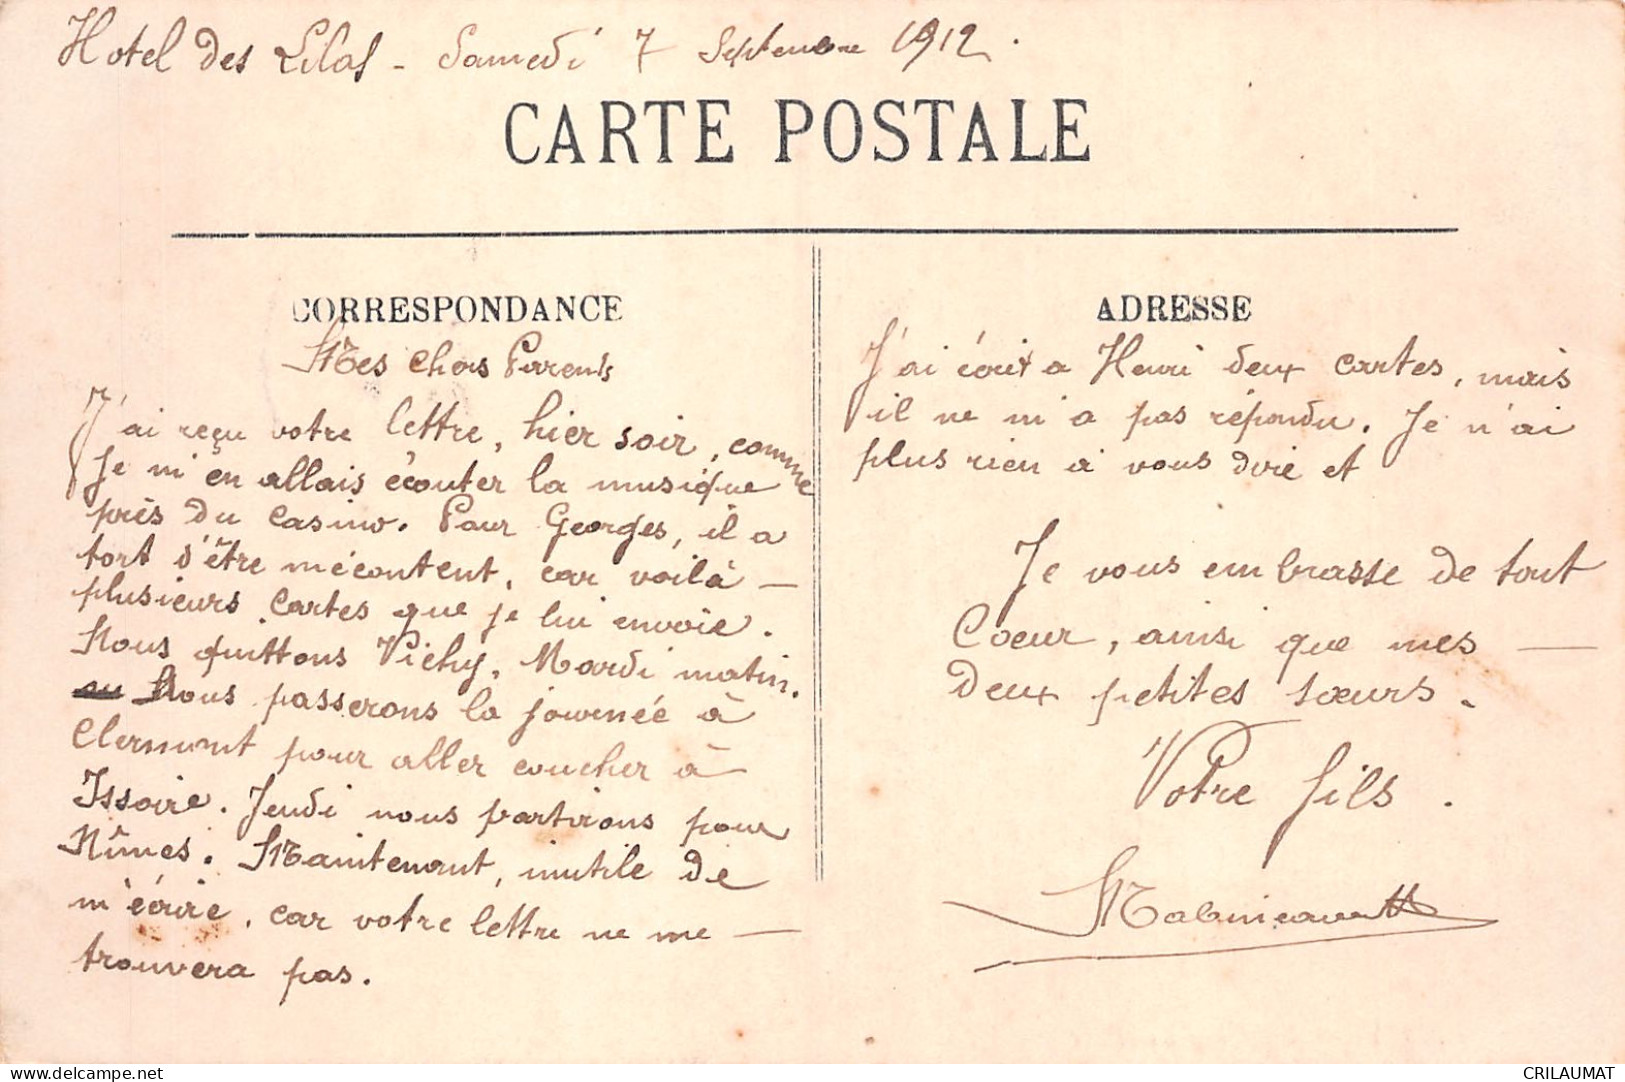 Hotel des Lilas - Samedi 7 Septembre 1912.
CARTE POSTALE
CORRESPONDANCE
Mes chers Parents
J'ai reçu votre lettre, hier soir, comme
Je m'en allais écouter la musique
près du casino. Pour Georges, il a
tort d'être mécontent, car voilà —
plusieurs cartes que je lui envoie.
Nous quittons Vichy, Mardi matin.
Nous passerons la journée à
Clermont pour aller coucher à
Issoire. Jeudi nous partirons pour
Nîmes. Maintenant, inutile de
m'écrire, car votre lettre ne me —
trouvera pas.
ADRESSE
J'ai écrit a Henri deux cartes, mais
il ne m'a pas répondu. Je n'ai
plus rien à vous dire et
Je vous embrasse de tout
Coeur, ainsi que mes —
deux petites sœurs.
Votre fils.
delcampe.net
CRILAUMAT